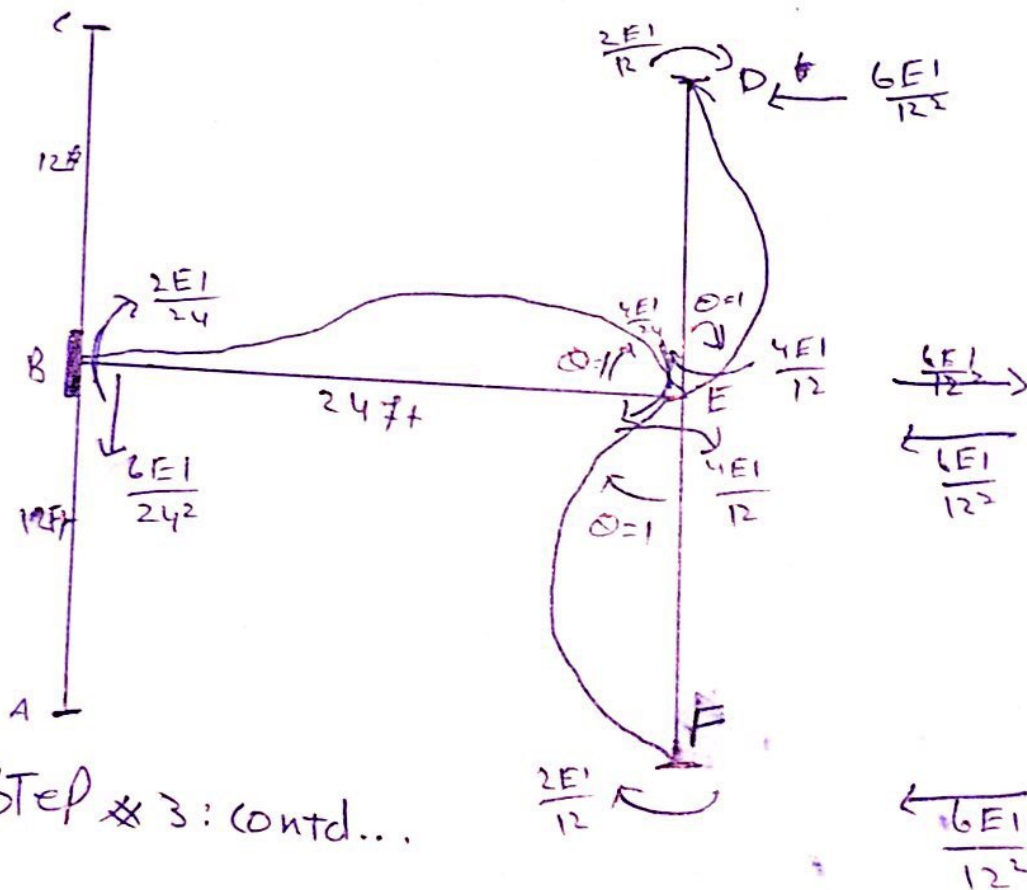 C
2EI/12
D
6EI/12²
12ft
2EI/24
4EI/24
θ=1
θ=1
4EI/12
6EI/12²
B
24ft
E
6EI/12²
6EI/24²
4EI/12
12ft
θ=1
A
F
STEP # 3: contd...
2EI/12
6EI/12²